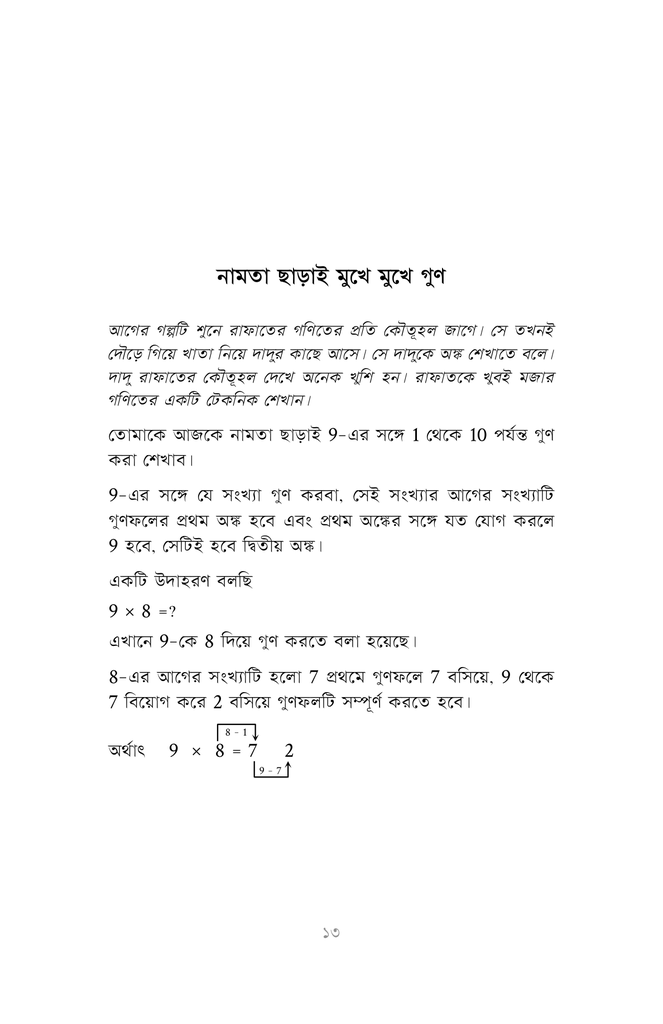 নামতা ছাড়াই মুখে মুখে গুণ
আগের গল্পটি শুনে রাফাতের গণিতের প্রতি কৌতূহল জাগে। সে তখনই
দৌড়ে গিয়ে খাতা নিয়ে দাদুর কাছে আসে। সে দাদুকে অঙ্ক শেখাতে বলে।
দাদু রাফাতের কৌতূহল দেখে অনেক খুশি হন। রাফাতকে খুবই মজার
গণিতের একটি টেকনিক শেখান।
তোমাকে আজকে নামতা ছাড়াই 9-এর সঙ্গে 1 থেকে 10 পর্যন্ত গুণ
করা শেখাব।
9-এর সঙ্গে যে সংখ্যা গুণ করবা, সেই সংখ্যার আগের সংখ্যাটি
গুণফলের প্রথম অঙ্ক হবে এবং প্রথম অঙ্কের সঙ্গে যত যোগ করলে
9 হবে, সেটিই হবে দ্বিতীয় অঙ্ক।
একটি উদাহরণ বলছি
9 × 8 =?
এখানে 9-কে 8 দিয়ে গুণ করতে বলা হয়েছে।
8-এর আগের সংখ্যাটি হলো 7 প্রথমে গুণফলে 7 বসিয়ে, 9 থেকে
7 বিয়োগ করে 2 বসিয়ে গুণফলটি সম্পূর্ণ করতে হবে।
8 - 1
অর্থাৎ 9 × 8 = 7 2
9 - 7
১৩